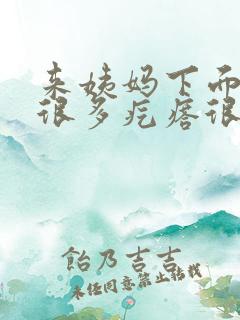 来姨妈下面
很多疙瘩很
飴乃吉吉
未经同意禁止转载